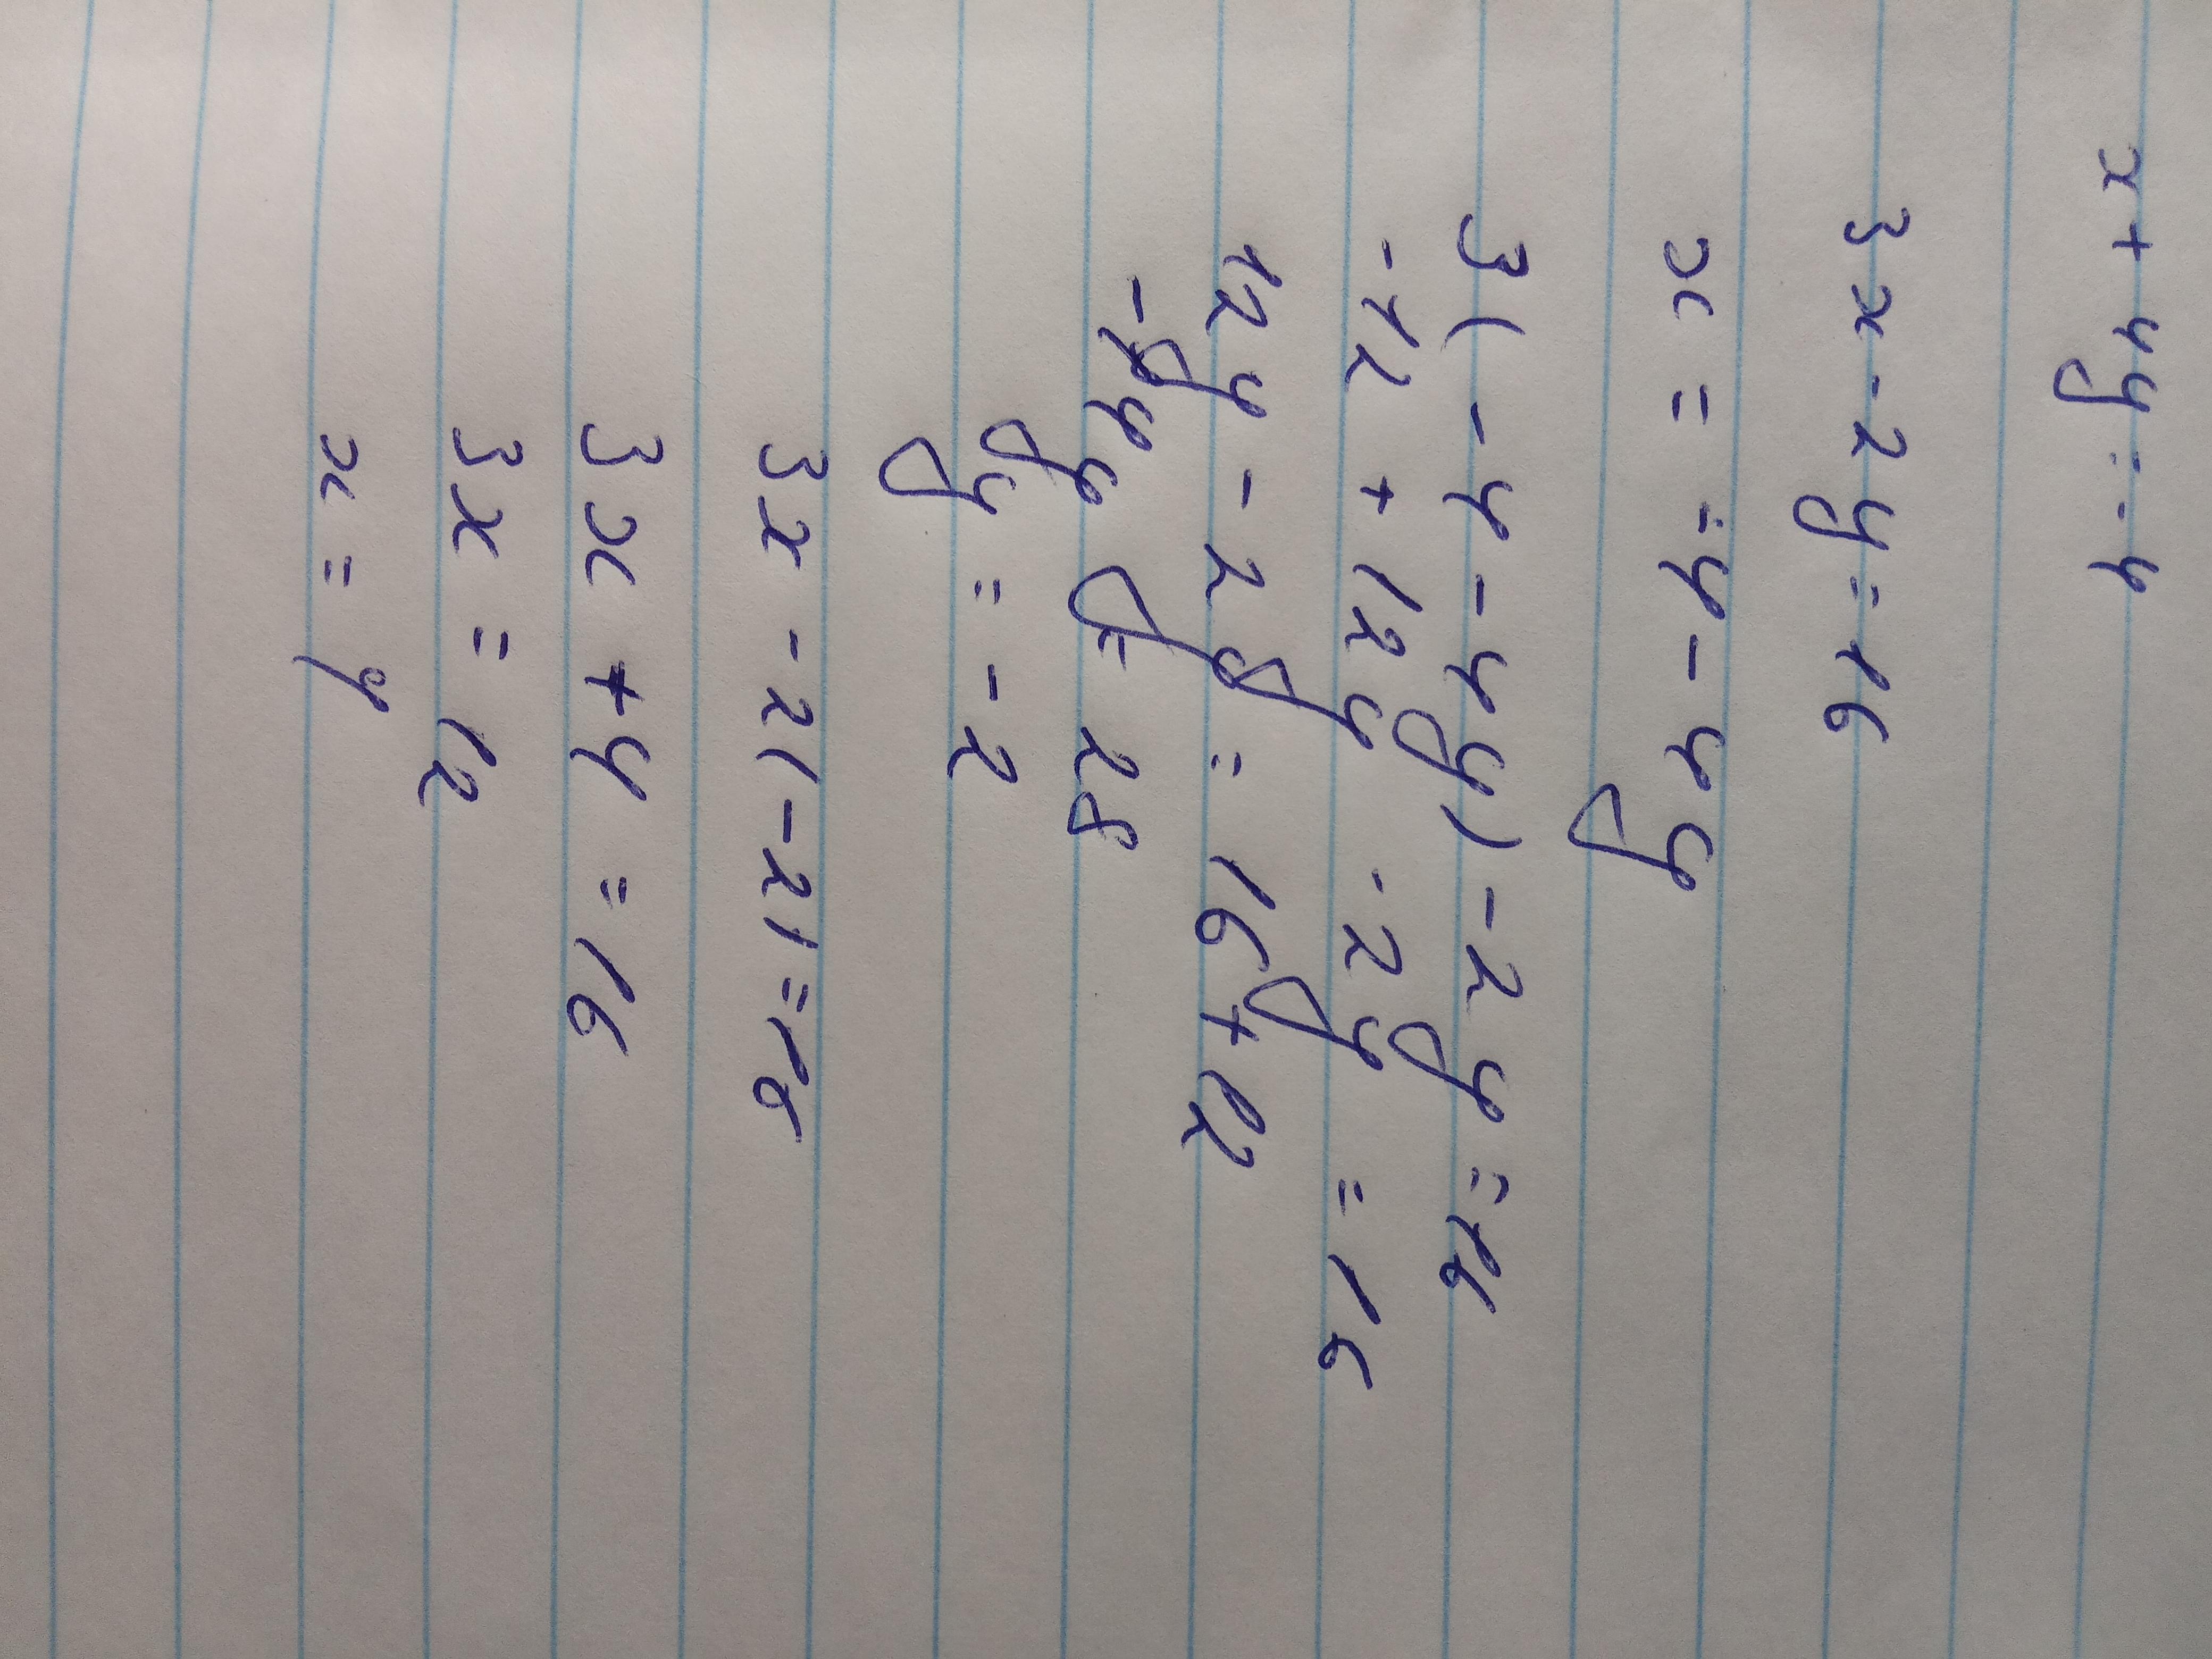 x + 4y = -4
3x - 2y = 16
x = -4 - 4y
3(-4 - 4y) - 2y = 16
-12 + 12y - 2y = 16
12y - 2y = 16 + 12
-14y = 28
y = -2
3x - 2(-2) = 16
3x + 4 = 16
3x = 12
x = 4